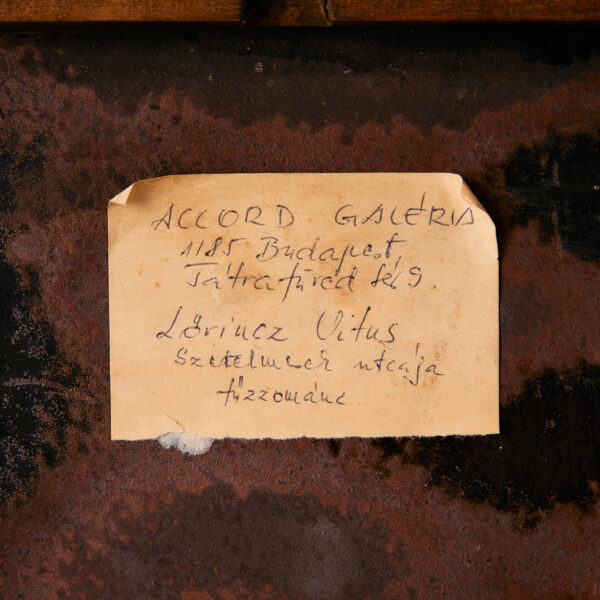 ACCORD GALÉRIA
1185 Budapest,
Tátrafüred tér 9.
Lőrincz Vitus
Szerelmesek utcája
tűzzománc